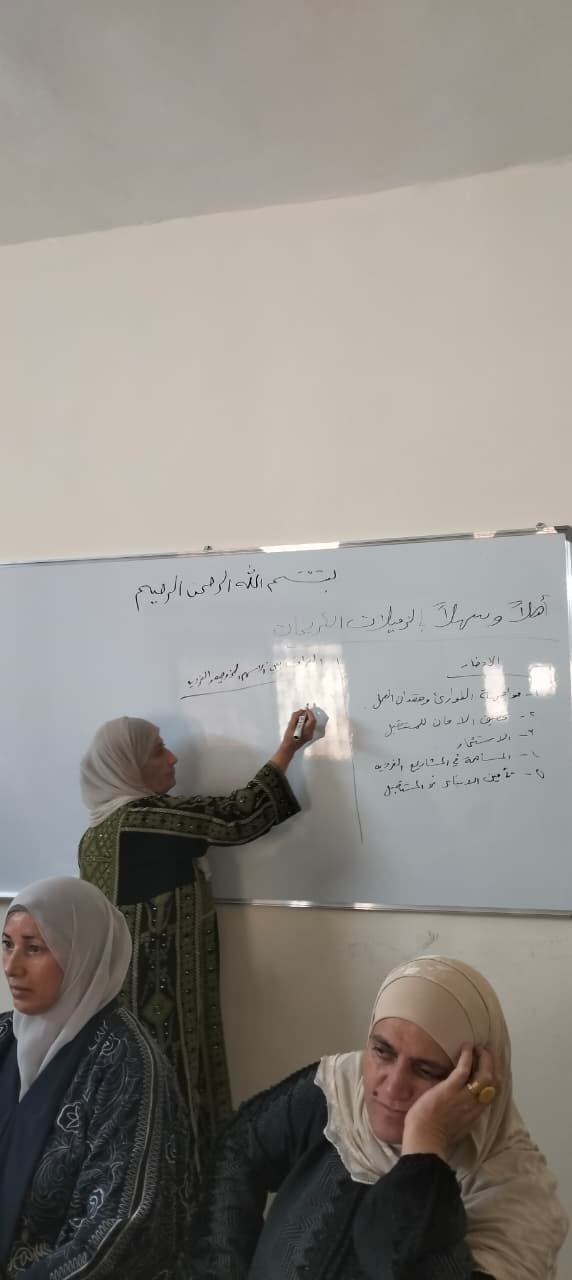 بسم الله الرحمن الرحيم
أهلاً وسهلاً بالزميلات الكريمات
الادخار
١- مواجهة الطوارئ وفقدان العمل
٢- الامان للمستقبل
٣- الاستثمار
٤- المساهمة في المشاريع الفردية
٥- تأمين الابناء في المستقبل
١-